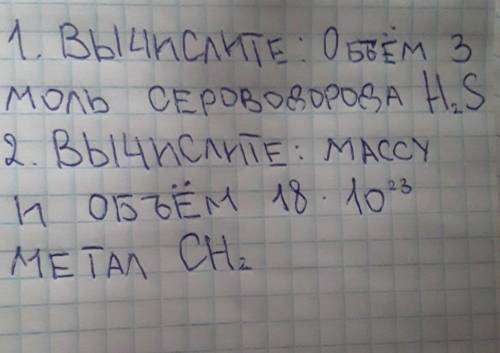 1. ВЫЧИСЛИТЕ: ОБЪЁМ 3
МОЛЬ СЕРОВОВОРОВА H₂S
2. ВЫЧИСЛИТЕ: МАССУ
И ОБЪЁМ 18 · 10²³
МЕТАЛ CH₂